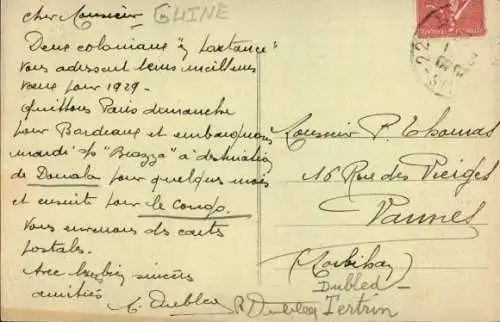 cher Monsieur GUINE
Deux coloniaux "
vous adressent leurs meilleurs
vœux pour 1929 -
Quittons Paris dimanche
pour Bordeaux et embarquons
mardi s/s "Brazza" à destination
de Douala pour quelques mois
et ensuite pour le Congo.
Vous enverrons des cartes
postales.
Avec sincères
amitiés
Dubled R Dubled
Monsieur P. Thomas
16 Rue des Vierges
Vannes
(Morbihan)
Dubled -
Tertrin